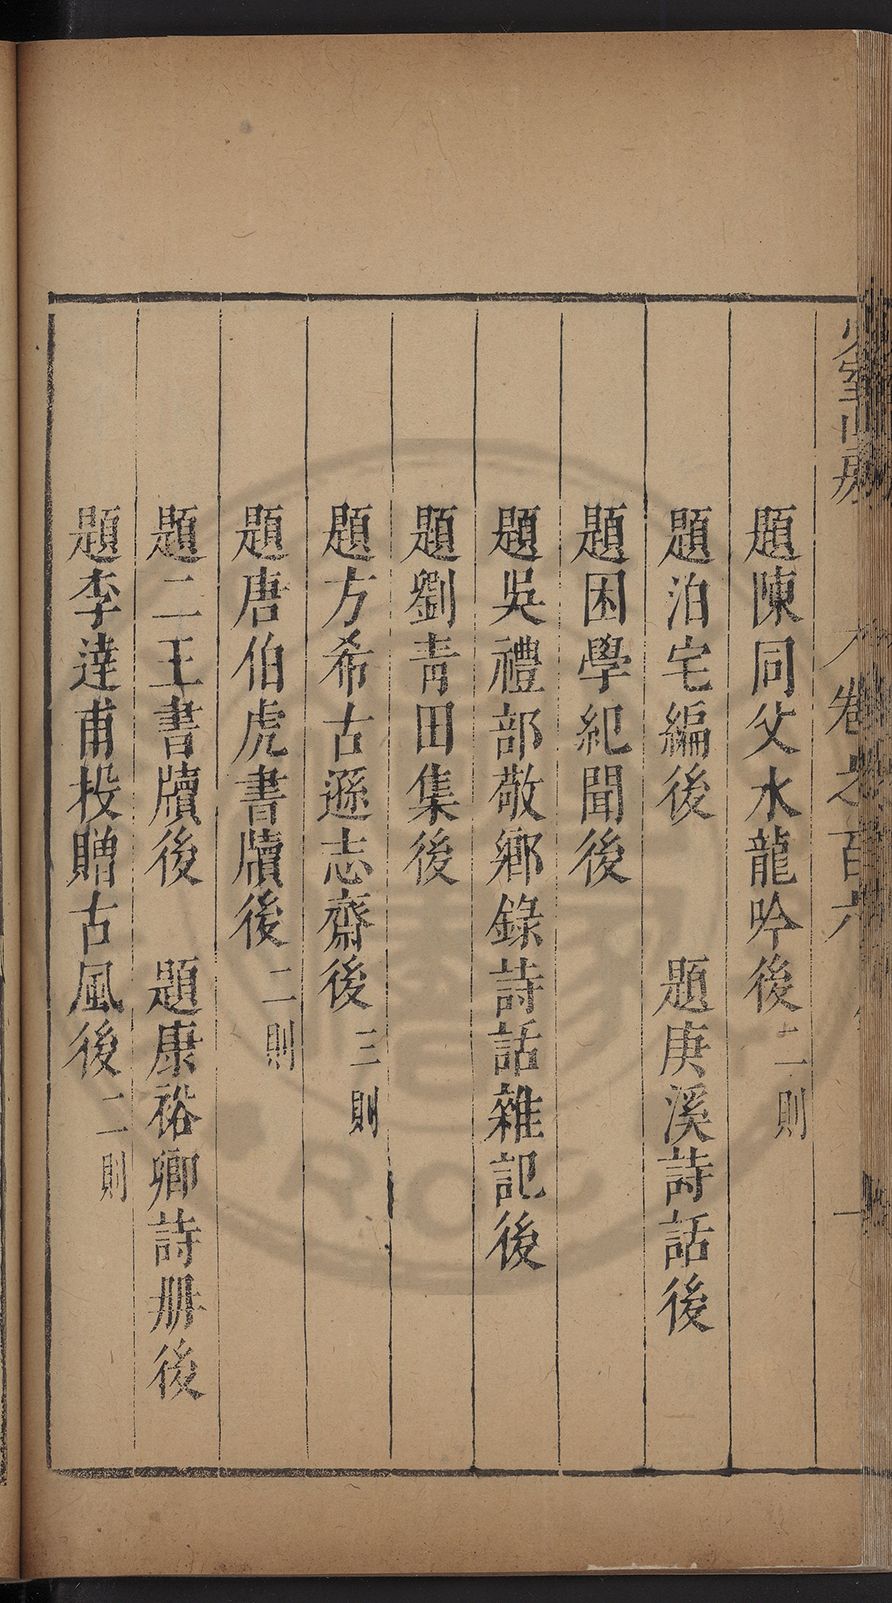 少室山房
卷之百六
一
題陳同父水龍吟後 二則
題泊宅編後 題庚溪詩話後
題困學紀聞後
題吳禮部敬鄉錄詩話雜記後
題劉青田集後
題方希古遜志齋後 三則
題唐伯虎書牘後 二則
題二王書牘後 題康裕卿詩册後
題李達甫投贈古風後 二則